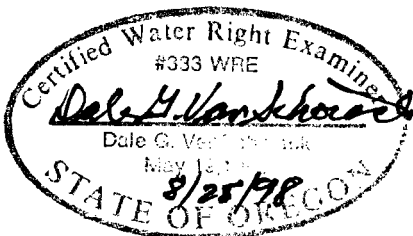 Certified Water Right Examiner
#333 WRE
Dale G.
Dale G.
May
8/25/98
STATE OF OREGON